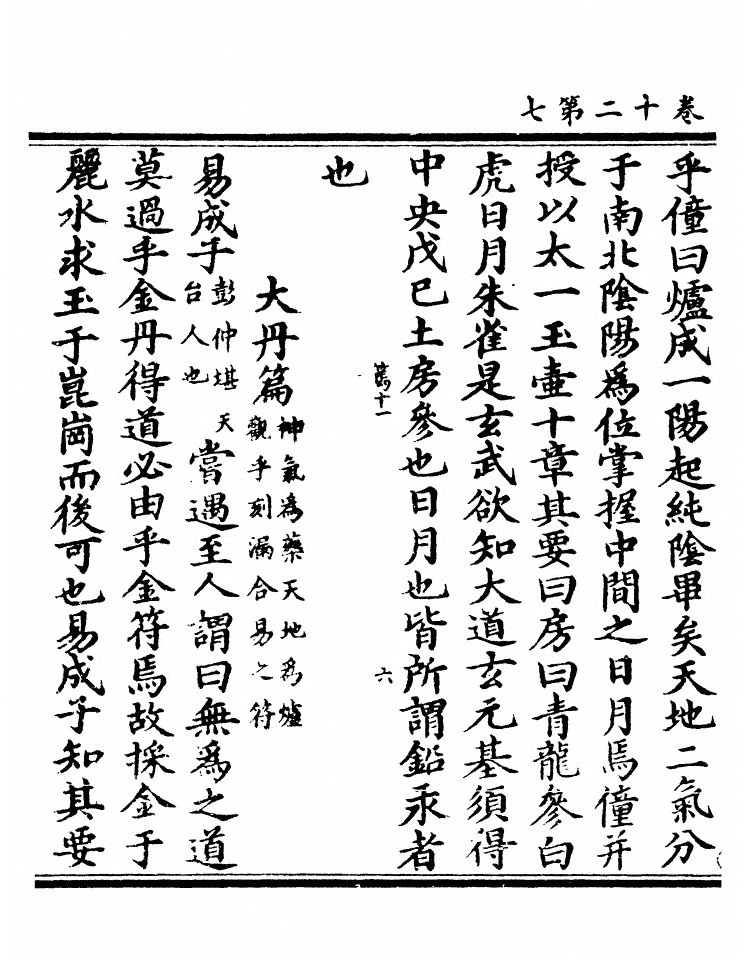 卷十二第七
乎僮曰爐成一陽起純陰畢矣天地二氣分
于南北陰陽為位掌握中間之日月焉僮并
授以太一玉壷十章其要曰房曰青龍參白
虎日月朱雀是玄武欲知大道玄元基須得
中央戊巳土房參也日月也皆所謂鉛汞者
篤十一
六
也
大丹篇神氣為藥天地為爐
觀乎刻漏合易之符
易成子彭仲堪天
台人也嘗遇至人謂曰無為之道
莫過乎金丹得道必由乎金符焉故採金于
麗水求玉于崑崗而後可也易成子知其要